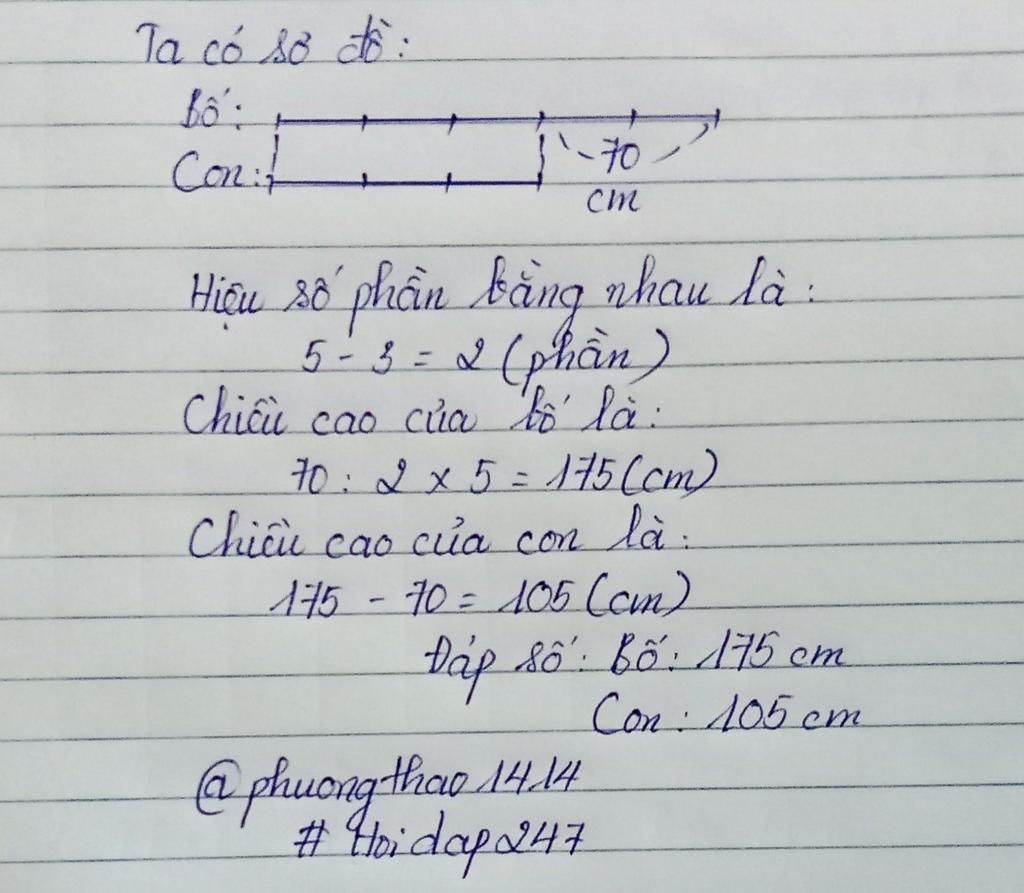 Ta có sơ đồ:
Bố:
Con:
70
cm
Hiệu số phần bằng nhau là:
5 - 3 = 2 (phần)
Chiều cao của bố là:
70 : 2 x 5 = 175 (cm)
Chiều cao của con là:
175 - 70 = 105 (cm)
Đáp số: Bố: 175 cm
Con: 105 cm
@phuongthao1414
# Hoidap247